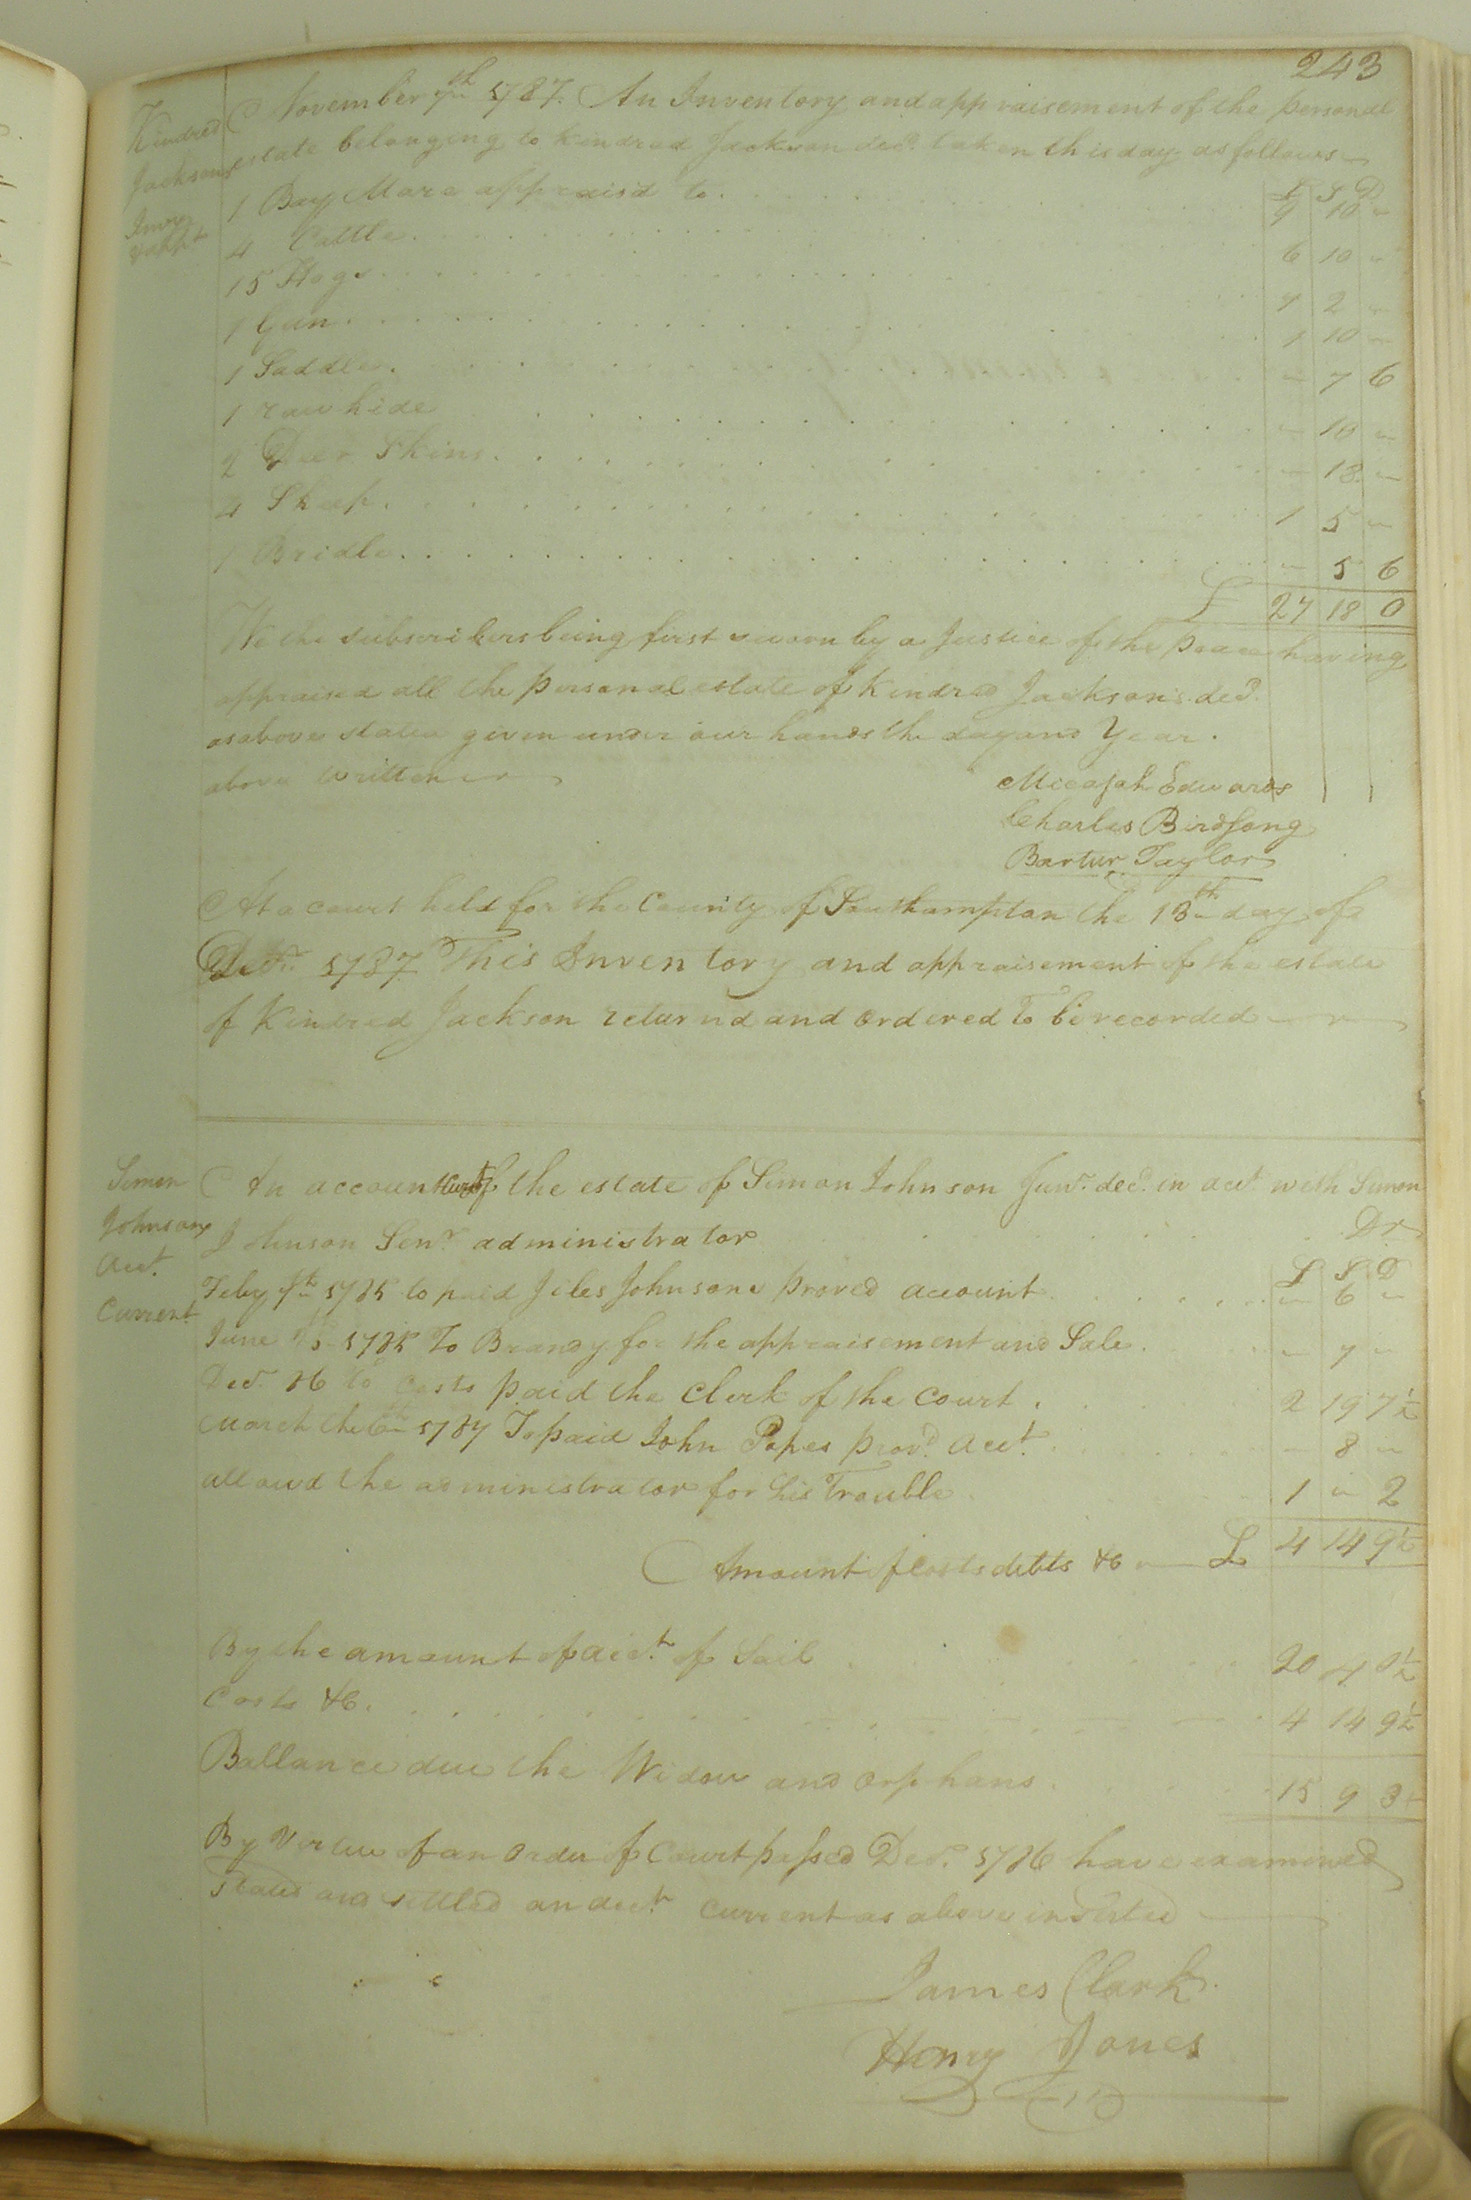 243
Kindred
Jacksons
Invy
& appt
November 7th 1787. An Inventory and appraisement of the personal
estate belonging to Kindred Jackson decd. taken this day as follows
£ S D
1 Bay Mare appraisd to 9 10 -
4 Cattle 6 10 -
15 Hogs 7 2 -
1 Gun 1 10 -
1 Saddle - 7 6
1 raw hide - 10 -
2 Deer Skins - 18 -
4 Sheep 1 5 -
1 Bridle - 5 6
£ 27 18 0
We the subscribers being first sworn by a Justice of the peace having
appraised all the personal estate of Kindred Jacksons decd.
as above stated given under our hands the day and Year
above written
Micajah Edwards
Charles Birdsong
Bartur Taylor
At a court held for the County of Southampton the 13th day of
Decr. 1787 This Inventory and appraisement of the estate
of Kindred Jackson returnd and ordered to be recorded
Simon
Johnsons
Acct.
Current
An account Currt of the estate of Simon Johnson Junr. decd. in acct. with Simon
Johnson Senr. administrator Dr
£ S D
Feby 7th 1785 to paid Jiles Johnsons proved account - 6 -
June 1785 To Brandy for the appraisement and Sale - 7 -
Decr. 86 to Costs paid the Clerk of the Court 2 19 7½
March the 6th 1787 To paid John Popes provd. acct. - 8 -
allowd the administrator for his Trouble 1 - 2
Amount of Costs debts &c £ 4 14 9½
By the amount of acct. of Sail 20 4 0½
Costs &c. 4 14 9½
Ballance due the Widow and orphans 15 9 3
By Virtue of an Order of Court passed Decr. 1786 have examined
Stated and settled an acct. Current as above inserted
James Clark
Henry Jones